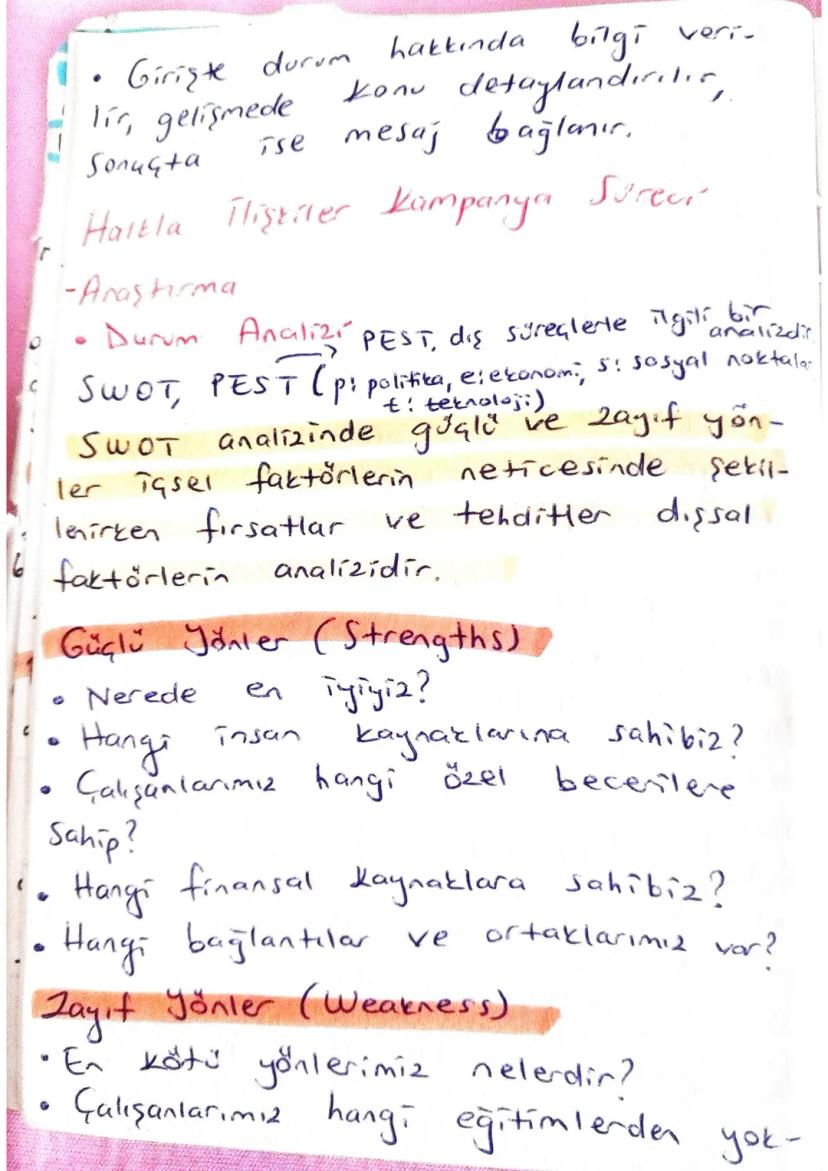 • Girişte durum hakkında bilgi veri-
lir, gelişmede konu detaylandırılır,
sonuçta ise mesaj bağlanır.
Halkla İlişkiler Kampanya Süreci
-Araştırma
• Durum Analizi PEST, dış süreçlerle ilgili bir
analizdir.
SWOT, PEST (p: politika, e: ekonomi, s: sosyal noktalar
t: teknoloji)
SWOT analizinde güçlü ve zayıf yön-
ler içsel faktörlerin neticesinde şekil-
lenirken fırsatlar ve tehditler dışsal
faktörlerin analizidir.
Güçlü Yönler (Strengths)
• Nerede en iyiyiz?
• Hangi insan kaynaklarına sahibiz?
• Çalışanlarımız hangi özel becerilere
sahip?
• Hangi finansal kaynaklara sahibiz?
• Hangi bağlantılar ve ortaklarımız var?
Zayıf Yönler (Weakness)
• En kötü yönlerimiz nelerdir?
• Çalışanlarımız hangi eğitimlerden yok-